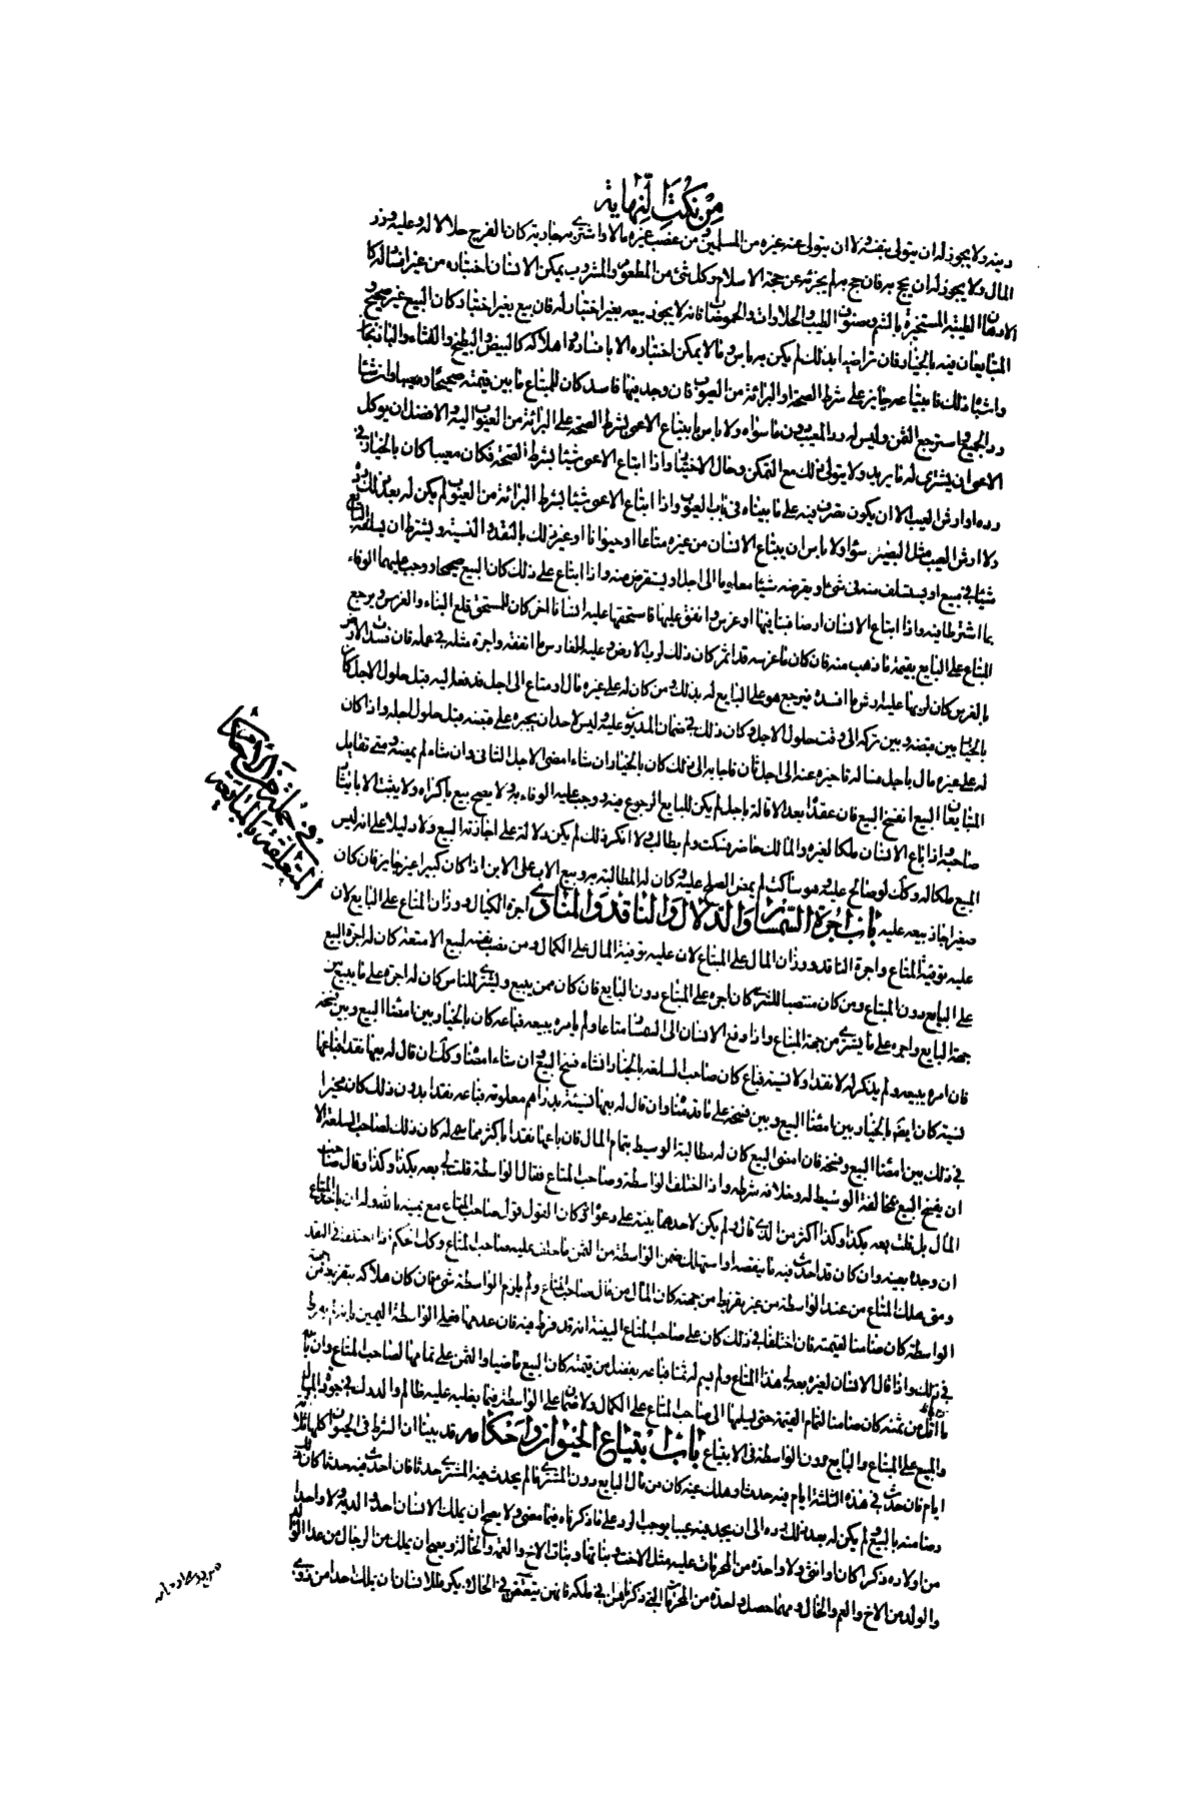 من نكت النهاية
دينه ولا يجوز له ان يتولى بنفسه الا ان يتولى عنه غيره من المسلمين ومن غصب غيره مالا واشترى به جارية كان الفرج حلالا له وعليه وزر
المال ولا يجوز له ان يحج به فان حج به لم يجزئه عن حجة الاسلام وكل شئ من المطعوم والمشروب يمكن الانسان اختباره من غير افساد له كا
الادهان الطيبة المستخبرة بالشم وصنوف الطيب والحلاوات والحموضات فانه لا يجوز بيعه بغير اختبار له فان بيع بغير اختبار كان البيع غير صحيح و
المتبايعان فيه بالخيار فان تراضيا بذلك لم يكن به باس وما لا يمكن اختباره الا بافساده واهلاكه كالبيض والبطيخ والقثاء والباذنجان
واشباه ذلك فابتياعه جايز على شرط الصحة او البرائة من العيوب فان وجد فيها فاسد كان للمبتاع ما بين قيمته صحيحا ومعيبا وان شاء
رد الجميع واسترجع الثمن وليس له رد المعيب دون ما سواه ولا باس بابتياع الاعمى بشرط الصحة او على البرائة من العيوب اليه والافضل ان يوكل
الاعمى من يشترى له ما يريد ولا يتولى ذلك مع التمكن وحال الاختيار واذا ابتاع الاعمى شيئا بشرط الصحة فكان معيبا كان بالخيار في
رده او ارش العيب الا ان يكون تصرف فيه على ما بيناه في باب العيوب واذا ابتاع الاعمى شيئا بشرط البرائة من العيوب لم يكن له بعد ذلك رده
ولا ارش العيب مثل البصير سواء ولا باس ان يبتاع الانسان من غيره متاعا او حيوانا او غير ذلك بالنقد والنسية ويشترط ان يسلفه البايع
شيئا في مبيع او يستسلف منه في شئ او يقرضه شيئا معلوما الى اجل او يستقرض منه واذا ابتاع على ذلك كان البيع صحيحا ووجب عليهما الوفاء
بما اشترطا فيه واذا ابتاع الانسان ارضا فبنا فيها او غرس وانفق عليها فاستحقها عليه انسان اخر كان للمستحق قلع البناء والغرس ويرجع
المبتاع على البايع بقيمة ما ذهب منه فان كان ما غرسه قد اثمر كان ذلك لرب الارض وعليه للغارس ما انفقه واجرة مثله في عمله فان فسدت الارض
بالغرس كان لربها عليه ارش ما افسده فيرجع هو على البايع له بذلك ومن كان له على غيره مال او متاع الى اجل فدفعه اليه قبل حلول الاجل كان
بالخيار بين قبضه وبين تركه الى وقت حلول الاجل وكان ذلك في ضمان المديون عليه وليس لاحد ان يجبره على قبضه قبل حلول اجله واذا كان
له على غيره مال باجل فساله تاخيره عنه الى اجل ثان فاجابه الى ذلك كان بالخيار ان شاء امضى الاجل الثاني وان شاء لم يمضه ومتى تقايل
المتبايعان البيع انفسخ البيع فان عقدا بعد الاقالة باجل لم يكن للبايع الرجوع فيه ووجب عليه الوفاء به ولا يصح بيع باكراه ولا يثبت الا بايثار
صاحبه واذا باع الانسان ملكا لغيره والمالك حاضر فسكت ولم يطالب ولا انكر ذلك لم يكن دلالة على اجازته البيع ولا دليلا على انه ليس
المبيع ملكا له وكذلك لو صالح عليه وهو ساكت لم يمض الصلح عليه وكان له المطالبة به وبيع الاب على الابن اذا كان كبيرا غير جايز فان كان
صغيرا جاز بيعه عليه باب اجرة السمسار والدلال والناقد والمنادى اجرة الكيال ووزان المتاع على البايع لان
عليه توفية المتاع واجرة الناقد ووزان المال على المبتاع لان عليه توفية المال على الكمال ومن نصب نفسه لبيع الامتعة كان له اجرة البيع
على البايع دون المبتاع ومن كان منتصبا للشرى كان اجره على المبتاع دون البايع فان كان ممن يبيع ويشترى للناس كان له اجرة على ما يبيع من
جهة البايع واجره على ما يشترى من جهة المبتاع واذا دفع الانسان الى السمسار متاعا ولم يامره ببيعه فباعه كان بالخيار بين امضاء البيع وبين فسخه
فان امره ببيعه ولم يذكر له لا نقدا ولا نسية فباع كان صاحب السلعة بالخيار ان شاء فسخ البيع وان شاء امضاه وكذلك ان قال له بعها نقدا فباعها
نسية كان ايضا بالخيار بين امضاء البيع وبين فسخه على ما قدمناه وان قال له بعها نسيئة بدراهم معلومة فباعه نقدا بدون ذلك كان مخيرا
في ذلك بين امضاء البيع وفسخه فان امضى البيع كان له مطالبة الوسيط بتمام المال فان باعها نقدا باكثر مما سمى له كان ذلك لصاحب السلعة الا
ان يفسخ البيع بمخالفة الوسيط له وخلافه شرطه واذا اختلف الواسطة وصاحب المتاع فقال الواسطة قلت لي بعه بكذا وكذا وقال صاحب
المال بل قلت بعه بكذا وكذا اكثر من الذي قال ولم يكن لاحدهما بينة على دعواه كان القول قول صاحب المتاع مع يمينه بالله وله ان ياخذ المتاع
ان وجده بعينه وان كان قد احدث فيه ما ينقصه او استهلك ضمن الواسطة من الثمن ما حلف عليه صاحب المتاع وكذلك الحكم اذا اختلفا في النقد
ومتى هلك المتاع من عند الواسطة من غير تفريط من جهته كان المال من مال صاحب المتاع ولم يلزم الواسطة شئ فان كان هلاكه بتفريط من جهة
الواسطة كان ضامنا لقيمته فان اختلفا في ذلك كان على صاحب المتاع البينة انه قد فرط فيه فان عدمها فعلى الواسطة اليمين بانه لم يفرط
في ذلك واذا قال الانسان لغيره بع لي هذا المتاع ولم يسم له ثمنا فباعه بفضل من قيمته كان البيع ماضيا والثمن على تمامه لصاحب المتاع وان باعه
باقل من ثمنه كان ضامنا لتمام القيمة حتى يسلمها الى صاحب المتاع على الكمال ولا ضمان على الواسطة فيما يغلبه عليه ظالم والدرك في جودة المال
والمبيع على المبتاع والبايع دون الواسطة في الابتياع باب ابتياع الحيوان واحكامه قد بينا ان الشرط في الحيوان كلها ثلاثة
ايام فان حدث في هذه الثلثة ايام فيه حدث او هلك عينه كان من مال البايع دون المشترى ما لم يحدث فيه المشترى حدثا فان احدث فيه حدثا كان ذلك
رضا منه بالبيع ولم يكن له بعد ذلك رده الى ان يجد فيه عيبا يوجب الرد على ما ذكرناه فيما مضى ولا يصح ان يملك الانسان احد والديه ولا واحدا
من اولاده ذكرا كان او انثى ولا واحدة من المحرمات عليه مثل الاخت وبناتها وبنات الاخ والعمة والخالة ويصح ان يملك من الرجال من عدا الوالد
والولد من الاخ والعم والخال ومهما حصل واحدة من المحرمات التي ذكرناهن في ملكه فانهن ينعتقن في الحال ويكره للانسان ان يملك احدا من ذوى
في جملة من الاحكام
المتعلقة بالمبايعة